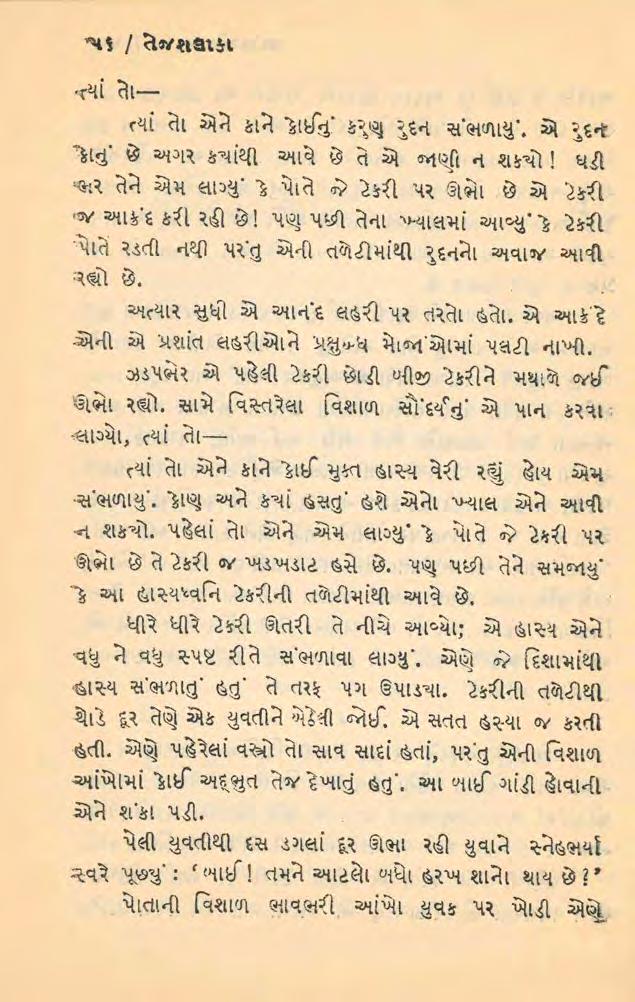 ૫૬ / તેજશલાકા
ત્યાં તો—
ત્યાં તો એને કાને કોઈનું કરુણ રુદન સંભળાયું. એ રુદન
કોનું છે અગર કયાંથી આવે છે તે એ જાણી ન શકયો! ઘડી
ભર તેને એમ લાગ્યું કે પોતે જે ટેકરી પર ઊભો છે એ ટેકરી
જ આક્રંદ કરી રહી છે! પણ પછી તેના ખ્યાલમાં આવ્યું કે ટેકરી
પોતે રડતી નથી પરંતુ એની તળેટીમાંથી રુદનનો અવાજ આવી
રહ્યો છે.
અત્યાર સુધી એ આનંદ લહરી પર તરતો હતો. એ આક્રંદે
એની એ પ્રશાંત લહરીઓને પ્રક્ષુબ્ધ મોજાંઓમાં પલટી નાખી.
ઝડપભેર એ પહેલી ટેકરી છોડી બીજી ટેકરીને મથાળે જઈ
ઊભો રહ્યો. સામે વિસ્તરેલા વિશાળ સૌંદર્યનું એ પાન કરવા
લાગ્યો, ત્યાં તો—
ત્યાં તો એને કાને કોઈ મુક્ત હાસ્ય વેરી રહ્યું હોય એમ
સંભળાયું. કોણ અને કયાં હસતું હશે એનો ખ્યાલ એને આવી
ન શકયો. પહેલાં તો એને એમ લાગ્યું કે પોતે જે ટેકરી પર
ઊભો છે તે ટેકરી જ ખડખડાટ હસે છે. પણ પછી તેને સમજાયું
કે આ હાસ્યધ્વનિ ટેકરીની તળેટીમાંથી આવે છે.
ધીરે ધીરે ટેકરી ઊતરી તે નીચે આવ્યો; એ હાસ્ય એને
વધુ ને વધુ સ્પષ્ટ રીતે સંભળાવા લાગ્યું. એણે જે દિશામાંથી
હાસ્ય સંભળાતું હતું તે તરફ પગ ઉપાડયા. ટેકરીની તળેટીથી
થોડે દૂર તેણે એક યુવતીને બેઠેલી જોઈ. એ સતત હસ્યા જ કરતી
હતી. એણે પહેરેલાં વસ્ત્રો તો સાવ સાદાં હતાં, પરંતુ એની વિશાળ
આંખોમાં કોઈ અદ્ભુત તેજ દેખાતું હતું. આ બાઈ ગાંડી હોવાની
એને શંકા પડી.
પેલી યુવતીથી દસ ડગલાં દૂર ઊભા રહી યુવાને સ્નેહભર્યા
સ્વરે પૂછયું : ‘બાઈ! તમને આટલો બધો હરખ શાનો થાય છે?’
પોતાની વિશાળ ભાવભરી આંખો યુવક પર ખોડી એણે